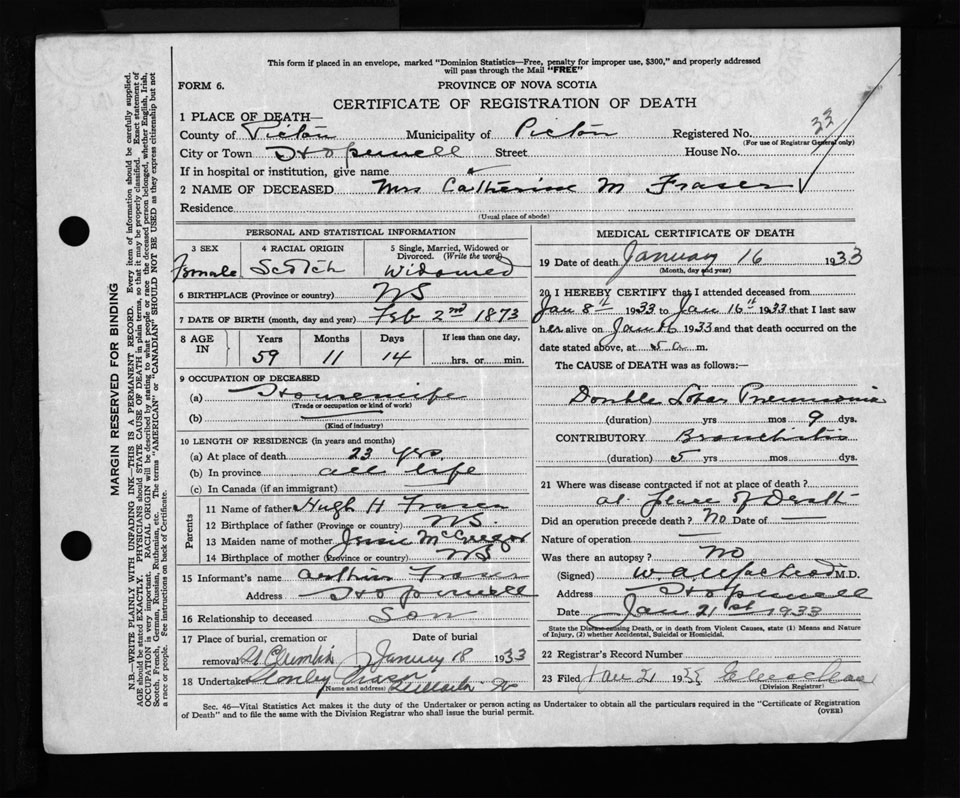 This form if placed in an envelope, marked "Dominion Statistics—Free, penalty for improper use, $300," and properly addressed
will pass through the Mail "FREE"
FORM 6.
PROVINCE OF NOVA SCOTIA
CERTIFICATE OF REGISTRATION OF DEATH
1 PLACE OF DEATH—
County of Pictou Municipality of Pictou Registered No. 33
(For use of Registrar General only)
City or Town Hopewell Street House No.
If in hospital or institution, give name
2 NAME OF DECEASED Mrs Catherine M Fraser
Residence
(Usual place of abode)
PERSONAL AND STATISTICAL INFORMATION
3 SEX Female
4 RACIAL ORIGIN Scotch
5 Single, Married, Widowed or Divorced. (Write the word) Widowed
6 BIRTHPLACE (Province or country) NS
7 DATE OF BIRTH (month, day and year) Feb 2nd 1873
8 AGE IN Years 59 Months 11 Days 14 If less than one day, hrs. or min.
9 OCCUPATION OF DECEASED
(a) Housewife
(Trade or occupation or kind of work)
(b)
(Kind of industry)
10 LENGTH OF RESIDENCE (in years and months)
(a) At place of death 23 yrs.
(b) In province all life
(c) In Canada (if an immigrant)
Parents
11 Name of father Hugh H Fraser
12 Birthplace of father (Province or country) NS.
13 Maiden name of mother Jessie McGregor
14 Birthplace of mother (Province or country) NS
15 Informant's name Arthur Fraser
Address Hopewell
16 Relationship to deceased Son
17 Place of burial, cremation or Date of burial
removal January 18 1933
18 Undertaker Stanley Fraser
(Name and address)
MEDICAL CERTIFICATE OF DEATH
19 Date of death January 16 1933
(Month, day and year)
20 I HEREBY CERTIFY that I attended deceased from
Jan 8th 1933 to Jan 16th 1933 that I last saw
her alive on Jan 16 1933 and that death occurred on
date stated above, at 5 a m.
The CAUSE of DEATH was as follows:—
Double Lobar Pneumonia
(duration) yrs mos 9 dys.
CONTRIBUTORY Bronchitis
(duration) 5 yrs mos dys.
21 Where was disease contracted if not at place of death?
at place of Death
Did an operation precede death? No Date of —
Nature of operation —
Was there an autopsy? No
(Signed) W.A. MacLeod M.D.
Address Hopewell
Date Jan 21st 1933
State the Disease causing Death, or in death from Violent Causes, state (1) Means and Nature
of Injury, (2) whether Accidental, Suicidal or Homicidal.
22 Registrar's Record Number
23 Filed Jan 21 1933
(Division Registrar)
Sec. 46—Vital Statistics Act makes it the duty of the Undertaker or person acting as Undertaker to obtain all the particulars required in the "Certificate of Registration
of Death" and to file the same with the Division Registrar who shall issue the burial permit.
(OVER)
MARGIN RESERVED FOR BINDING
N.B.—WRITE PLAINLY WITH UNFADING INK—THIS IS A PERMANENT RECORD. Every item of information should be carefully supplied.
AGE should be stated EXACTLY. PHYSICIANS should STATE CAUSE OF DEATH in plain terms, so that it may be properly classified. Exact statement of
OCCUPATION is very important. RACIAL ORIGIN will be described by stating to what people or race the deceased person belonged, whether English, Irish,
Scotch, French, German, Russian, Ruthenian, etc. The terms "AMERICAN" or "CANADIAN" SHOULD NOT BE USED as they express citizenship but not
a race or people. See instructions on back of Certificate.